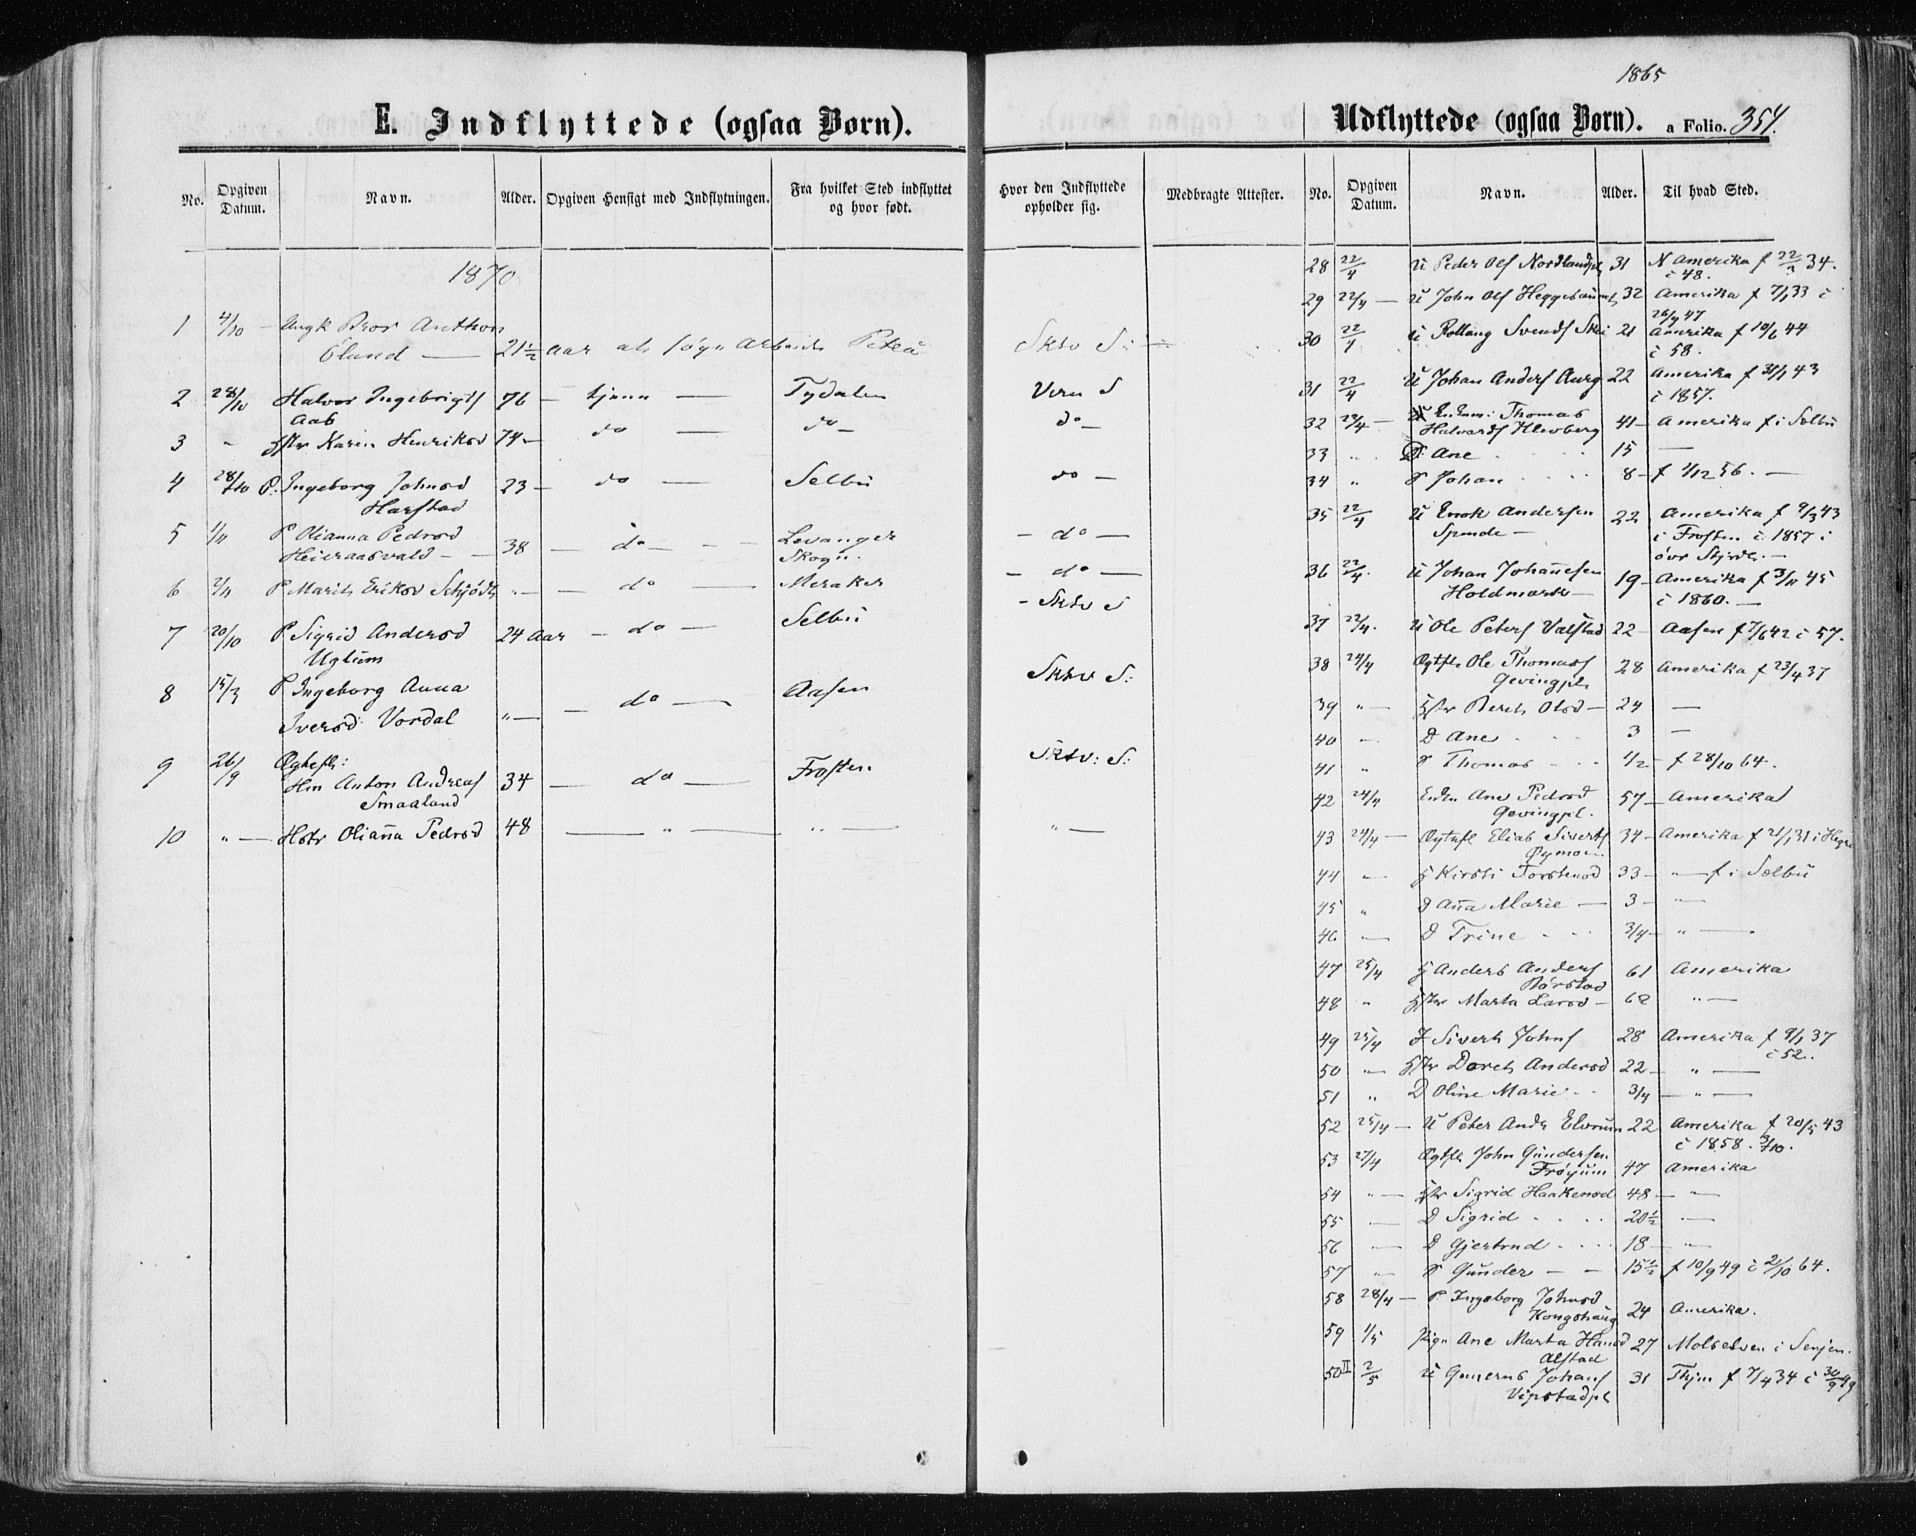 1865
E. Indflyttede (ogsaa Børn).
Udflyttede (ogsaa Børn). a Folio. 354.
No. Opgiven Datum. Navn. Alder. Opgiven Hensigt med Indflytningen. Fra hvilket Sted indflyttet og hvor født.
Hvor den Indflyttede opholder sig. Medbragte Attester. No. Opgiven Datum. Navn. Alder. Til hvad Sted.
1870
1 4/10 — Ungk Bror Anthon
Öland — 21 1/2 aar at søge Arbeide Piteå Sktv S:
2 28/10 Halvor Ingebrigts 76 — tjene — Tydalen Vern S
Aas
3 " Hstr Karen Henriksd 74 — do — do — do —
4 28/10 P. Ingeborg Johnsd 23 — do — Selbu do —
Harstad
5 1/11 P Olianna Pedrsd
Heieraasvald — 38 — do — Levanger — do —
Skogn.
6 2/11 P Marit Eriksd Schjødts " — do — Meraker — do —
7 20/10 P Sigrid Andersd 24 Aar — do — Selbu — Sktv S
Uglum
8 15/3 P Ingeborg Anna
Iversd Vordal " — do — Aasen Sktv S:
9 26/9 Ægtefk:
Hm Anton Andreas 34 — do — Frosten Sktv: S:
Smaaland
10 " — Hstr Olianna Pedrsd 48 — " — " — " —
28 22/4 U Peder Ols Nordlandpl 31 N Amerika f 22/2 34.
i 48.
29 22/4 — U John Ols Heggebaunet 32 Amerika f 7/1 33 i
26/9 47
30 22/4 U Rollaug Svends Skei 21 Amerika f 10/6 44
i 58.
31 22/4 U Johan Anders Aurg 22 Amerika f 31/1 43
i 1857.
32 22/4 — Enkem: Thomas
Halvards Klevberg 41 — Amerika f i Selbu
33 " D: Ane 15 —
34 " S Johan 8 — f 1/12 56. —
35 22/4 U Enok Andersen 22 Amerika f 9/3 43
Spinde — i Frosten i 1857 i
övr Stjrdl. —
36 22/4. U Johan Johannesen 19 — Amerika f 3/11 45
Holdmark — i 1860. —
37 22/4. U Ole Peters Valstad 22 — Aasen f 7/6 42 i 57.
38 24/4 Ægtfk Ole Thomass 28 Amerika f 23/4 37
Gevingpl.
39 " — Hstr Beret Olsd — 24 —
40 — D Ane 3 —
41 " S Thomas 1/2 — f 28/10 64.
42 24/4 Enke Ane Pedrsd 57 — Amerika
Gevingpl.
43 24/4 — Ægtefk Elias Siverts 34 — Amerika f 21/1 31 i Hegra
Øymoen
44 — H Kirsti Torstensd 33 — " — f i Selbu
45 " D Anna Marie — 3 — " —
46 — D Trine 3/4 — " —
47 25/4 H Anders Anders 61 Amerika
Børstad
48 " Hstr Marta Larsd — 62 " —
49 25/4 I Sivert Johns 28 Amerika f 9/1 37
i 52.
50 " — Hstr Doret Andersd 22 — " —
51 " D Oline Marie 3/4 — " —
52 25/4 — U Peter Ands Elvrum 22 Amerika f 20/5 43
i 1858. 3/10.
53 27/4 Ægtfk John Gundersen
Frøyum 47 Amerika
54 " — Hstr Sigrid Haakensd 48 — " —
55 — D Sigrid 20 1/2 " —
56 — D Gjertrud 18 — " —
57 " S Gunder — — 15 1/2 f 10/9 49 i 2/10 64.
58 28/4 — P Ingeborg Johnsd
Kongshaug 24 Amerika.
59 1/5 Pige Ane Marta Hansd 27 Molselven i Senjen.
Alstad
50 II 2/5 U Gunerus Johans 31 Thjm f 7/4 34 i 30/9 49
Vipstadpl